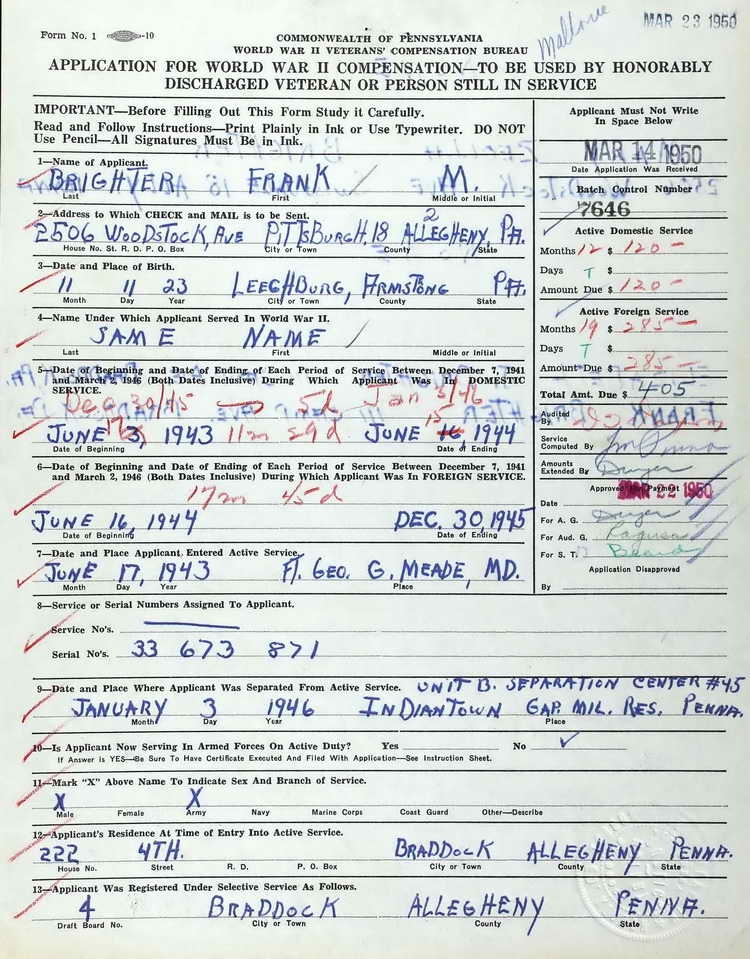 Form No. 1 -10
COMMONWEALTH OF PENNSYLVANIA
WORLD WAR II VETERANS' COMPENSATION BUREAU
MAR 23 1950
APPLICATION FOR WORLD WAR II COMPENSATION—TO BE USED BY HONORABLY
DISCHARGED VETERAN OR PERSON STILL IN SERVICE
IMPORTANT—Before Filling Out This Form Study it Carefully.
Read and Follow Instructions—Print Plainly in Ink or Use Typewriter. DO NOT
Use Pencil—All Signatures Must Be in Ink.
1—Name of Applicant.
BRIGHTER FRANK M.
Last First Middle or Initial
2—Address to Which CHECK and MAIL is to be Sent.
2506 WOODSTOCK, AVE PITTSBURGH, 18 2 ALLEGHENY, PA.
House No. St. R. D. P. O. Box City or Town County State
3—Date and Place of Birth.
11 11 23 LEECHBURG, ARMSTONG PA.
Month Day Year City or Town County State
4—Name Under Which Applicant Served In World War II.
SAME NAME
Last First Middle or Initial
5—Date of Beginning and Date of Ending of Each Period of Service Between December 7, 1941
and March 2, 1946 (Both Dates Inclusive) During Which Applicant Was In DOMESTIC
SERVICE.
Dec 30/45 — 5d Jan 3/46
JUNE 17 3, 1943 11m 29d JUNE 15 16, 1944
Date of Beginning Date of Ending
6—Date of Beginning and Date of Ending of Each Period of Service Between December 7, 1941
and March 2, 1946 (Both Dates Inclusive) During Which Applicant Was in FOREIGN SERVICE.
JUNE 16, 1944 DEC. 30, 1945
Date of Beginning Date of Ending
7—Date and Place Applicant Entered Active Service.
JUNE 17, 1943 FT. GEO. G. MEADE, MD.
Month Day Year Place
8—Service or Serial Numbers Assigned To Applicant.
Service No's.
Serial No's. 33 673 871
9—Date and Place Where Applicant Was Separated From Active Service. UNIT B. SEPARATION CENTER #45
JANUARY 3 1946 INDIANTOWN GAP MIL. RES, PENNA.
Month Day Year Place
10—Is Applicant Now Serving In Armed Forces On Active Duty? Yes No ✓
If Answer is YES—Be Sure To Have Certificate Executed And Filed With Application—See Instruction Sheet.
11—Mark "X" Above Name To Indicate Sex And Branch of Service.
X X
Male Female Army Navy Marine Corps Coast Guard Other—Describe
12—Applicant's Residence At Time of Entry Into Active Service.
222 4TH. BRADDOCK ALLEGHENY PENNA.
House No. Street R. D. P. O. Box City or Town County State
13—Applicant Was Registered Under Selective Service As Follows.
4 BRADDOCK ALLEGHENY PENNA.
Draft Board No. City or Town County State
Applicant Must Not Write
In Space Below
MAR 14 1950
Date Application Was Received
Batch Control Number
7646
Active Domestic Service
Months 12 $ 120 —
Days $
Amount Due $ 120 —
Active Foreign Service
Months 19 $ 285 —
Days $
Amount Due $ 285 —
Total Amt. Due $ 405
Audited
By
Service
Computed By
Amounts
Extended By Dwyer
Approved For Payment
MAR 22 1950
Date
For A. G. Dwyer
For Aud. G.
For S. T. Beard
Application Disapproved
By